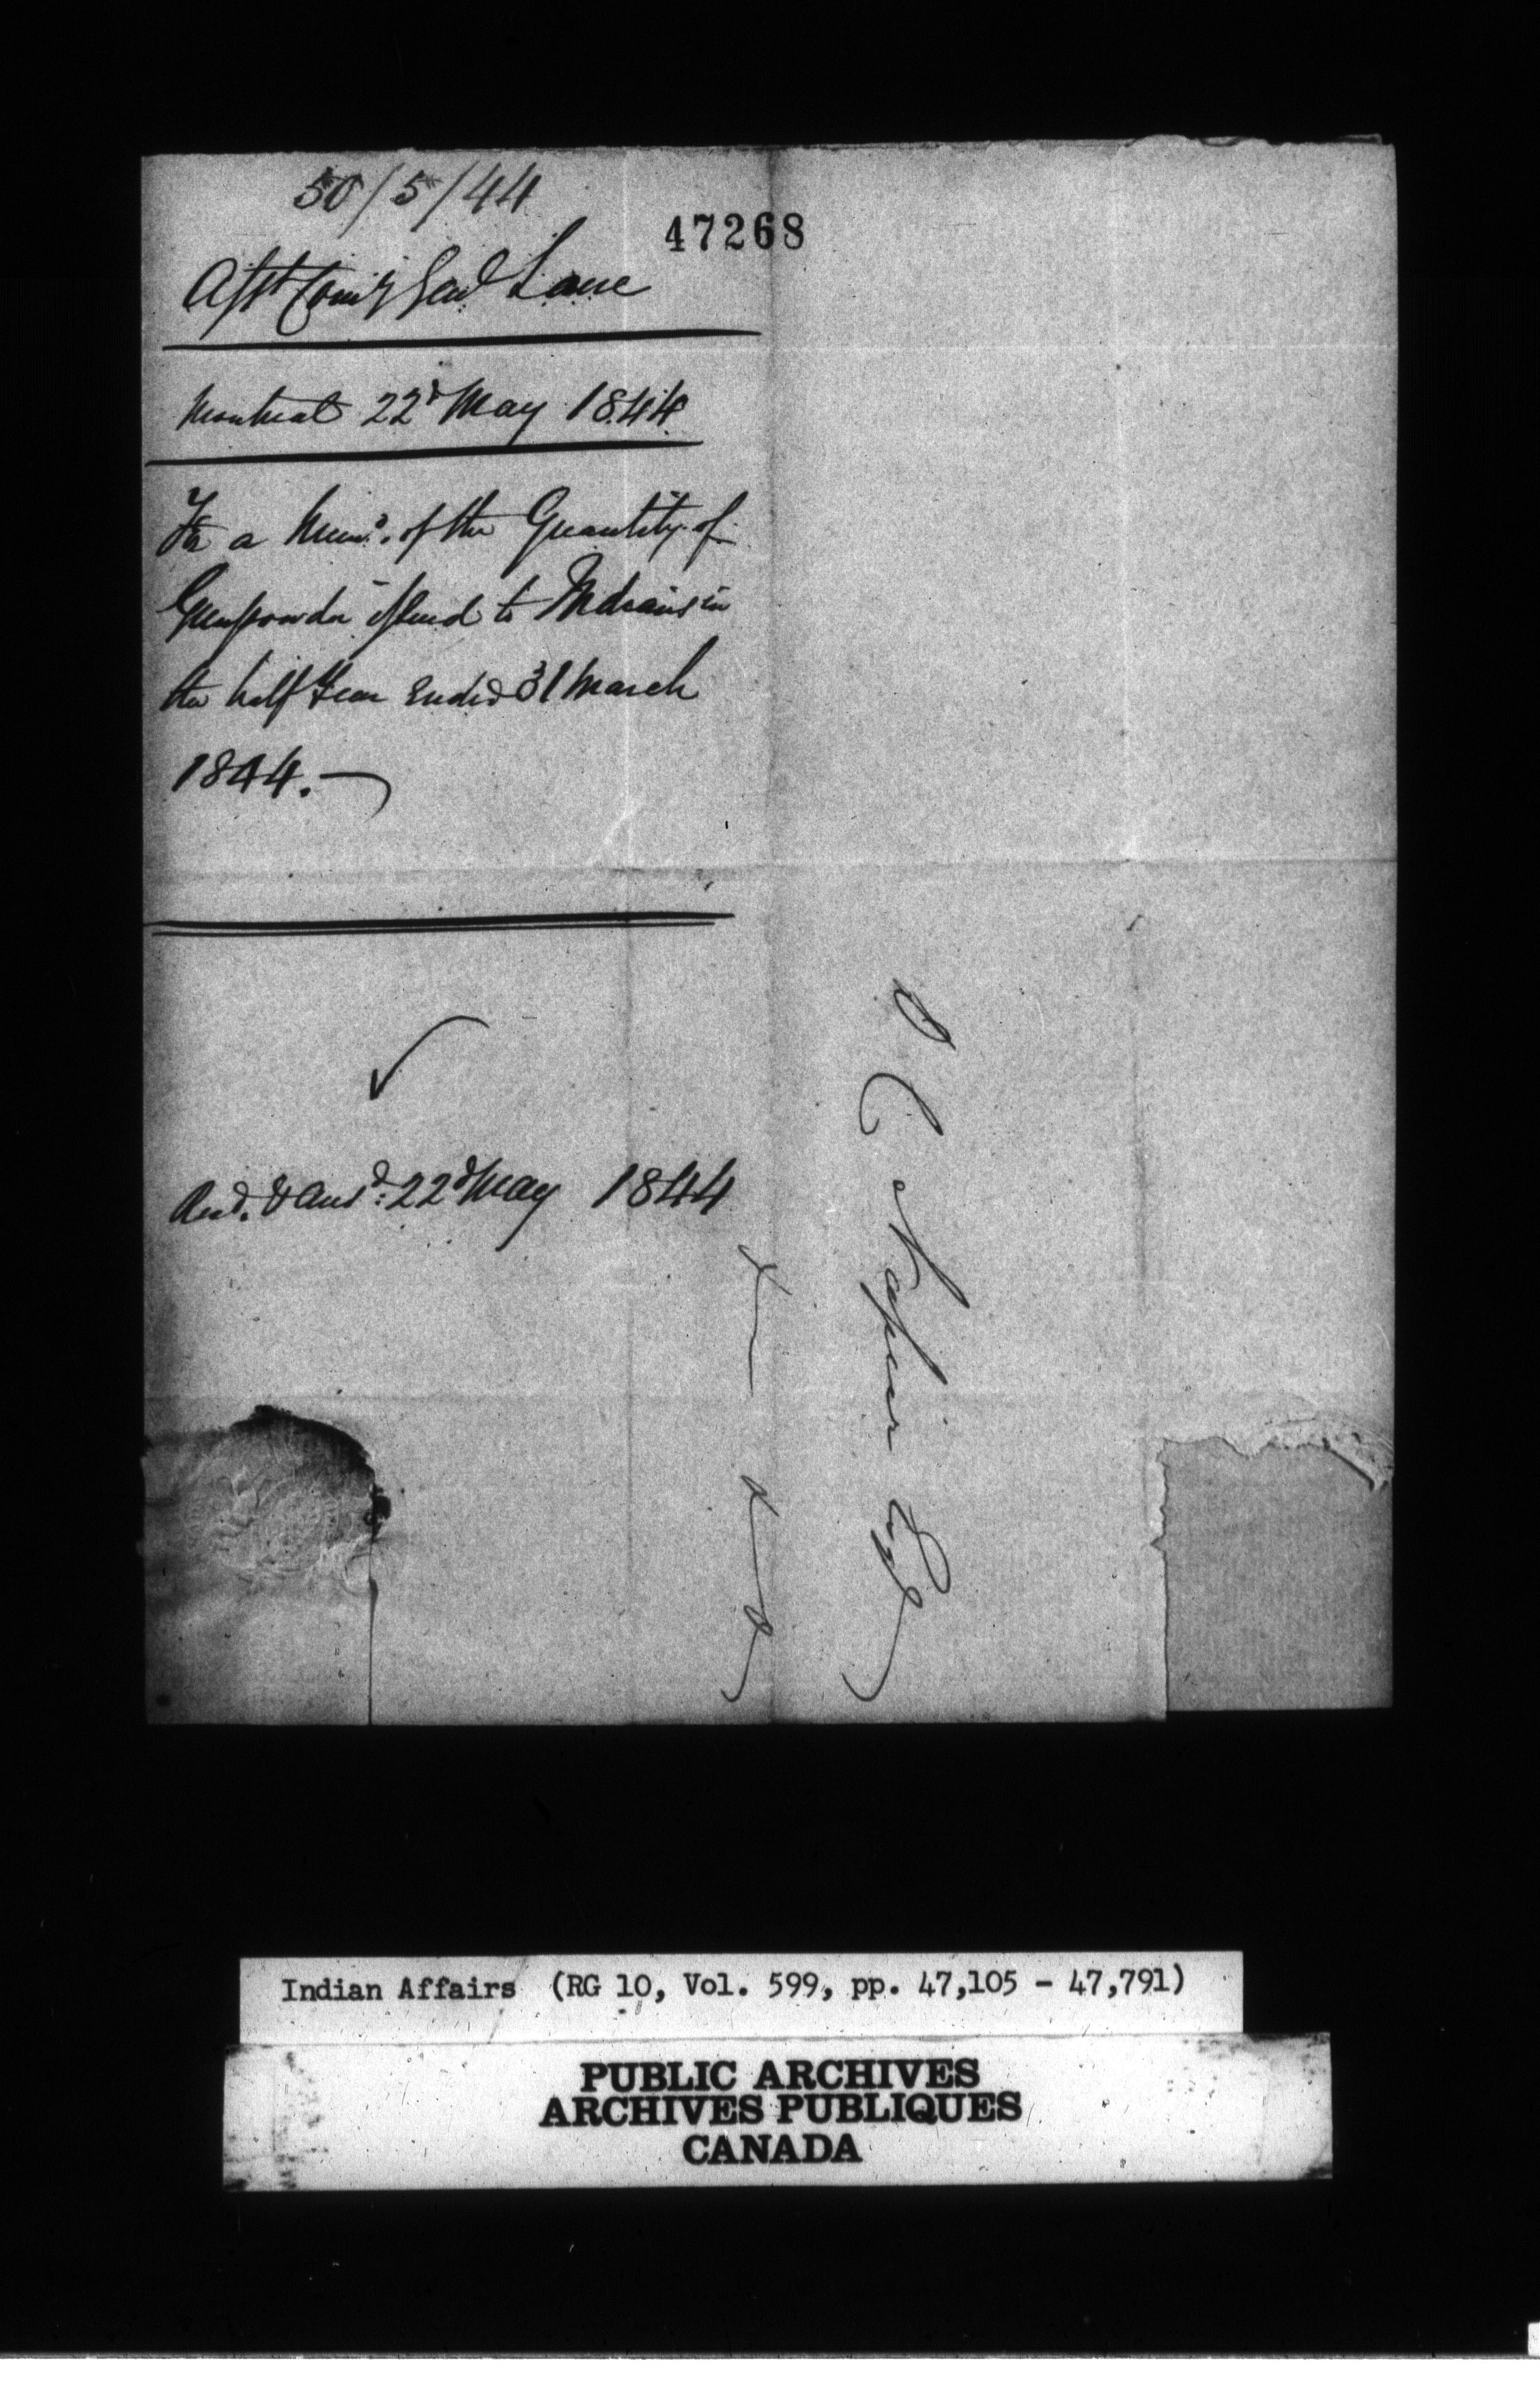 50/5/44
47268
Asst Comy Genl Lane
Montreal 22d May 1844
For a Memo. of the Quantity of
Gunpowder issued to Indians in
the half Year Ended 31 March
1844.
Recd. & Ansd: 22d May 1844
D C Napier Esqr
Indian Affairs (RG 10, Vol. 599, pp. 47,105 - 47,791)
PUBLIC ARCHIVES
ARCHIVES PUBLIQUES
CANADA